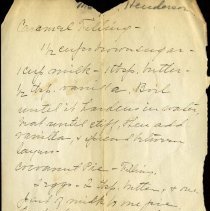 Henderson
Caramel Filling -
1½ cups brown sugar -
1 cup milk - 1 tbsp. butter -
½ tsp. vanilla. Boil
until it hardens in water
until stiff, then add
vanilla, & spread between
layers -
Cocoanut Pie - Filling.
2 eggs - 2 tbsp. butter, & one
pint of milk to one pie